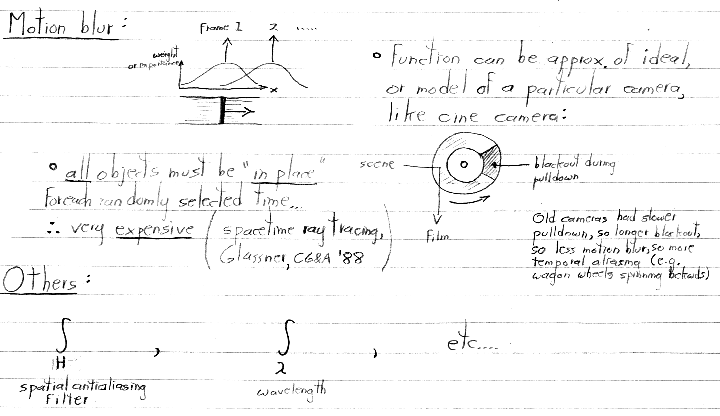 Motion blur:
Frame 1 2 .....
weight
or importance
x
• Function can be approx. of ideal,
or model of a particular camera,
like cine camera:
scene
blackout during
pulldown
Film
• all objects must be "in place"
Foreach randomly selected time...
∴ very expensive (spacetime ray tracing,
Glassner, CG&A '88)
Old cameras had slower
pulldown, so longer blackout,
so less motion blur, so more
temporal aliasing (e.g.
wagon wheels spinning bckwds)
Others:
∫H , ∫λ , etc....
spatial antialiasing
Filter
wavelength